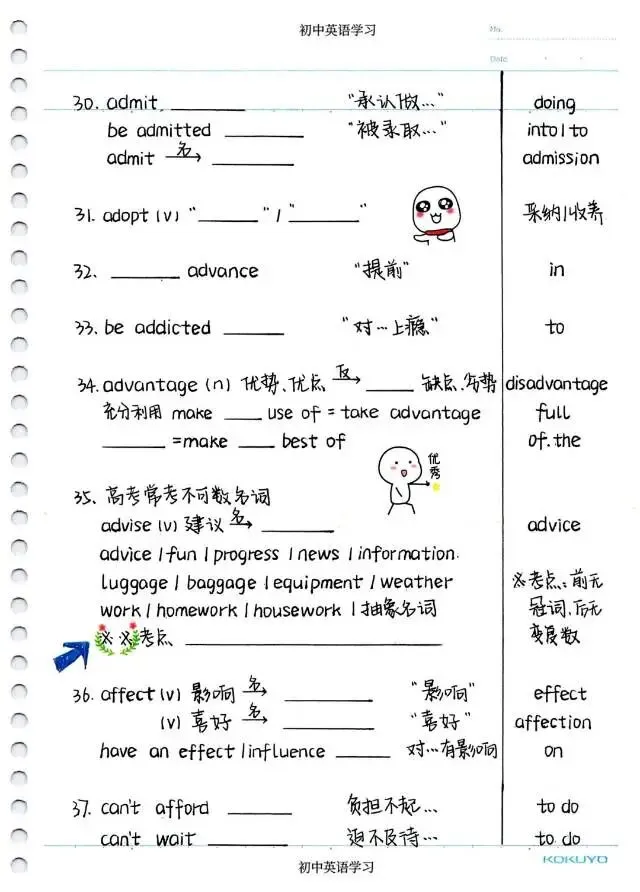 初中英语学习
No.
Date
30. admit ______ "承认做…" doing
be admitted ______ "被录取…" into/to
admit 名→ ______ admission
31. adopt (v) "______" / "______" 采纳/收养
32. ______ advance "提前" in
33. be addicted ______ "对…上瘾" to
34. advantage (n) 优势、优点 反→ ______ 缺点、劣势 disadvantage
充分利用 make ____ use of = take advantage full
______ = make ____ best of of. the
优秀
35. 高考常考不可数名词
advise (v) 建议 名→ ______ advice
advice / fun / progress / news / information.
luggage / baggage / equipment / weather ※考点:前无
work / homework / housework / 抽象名词 冠词,后无
※ ※考点、______ 变复数
36. affect (v) 影响 名→ ______ "影响" effect
(v) 喜好 名→ ______ "喜好" affection
have an effect / influence ______ 对…有影响 on
37. can't afford ______ 负担不起… to do
can't wait ______ 迫不及待… to do
初中英语学习
KOKUYO